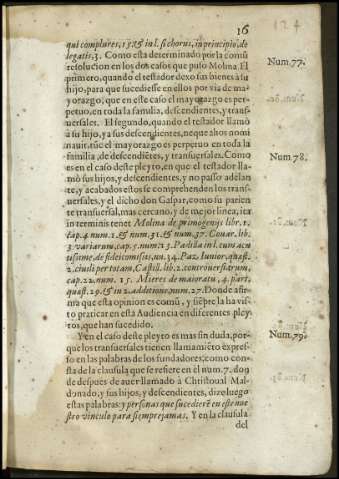 16
qui complures, 158 & in l. si chorus, in principio, de
legatis. 3. Como esta determinado por la comũ
resolucion en los dos casos que puso Molina. El
primero, quando el testador dexo sus bienes a su
hijo, para que sucediesse en ellos por via de ma-
yorazgo, que en este caso el mayorazgo es per-
petuo, en toda la familia, descendientes, y trans-
uersales. El segundo, quando el testador llamò
à su hijo, y a sus descendientes, ne que alios nomi
nauit, que el mayorazgo es perpetuo en toda la
familia, de descendiẽtes, y transuersales. Como
es en el caso deste pleyto, en que el testador lla-
mò sus hijos, y descendientes, y no passo adelan
te, y acabados estos se comprehenden los trans-
uersales, y el dicho don Gaspar, como su parien
te transuersal, mas cercano, y de mejor linea, ita
in terminis tenet Molina de primogenijs libr. 1.
cap. 4. num. 2. & num. 31. & num. 37. Couar. lib.
3. variarum, cap. 5. num.
Paz. Iunior, quæst.
2. ciuili per totam, Castill. lib. 2. controuersiarum,
cap. 22. num. 15. Mieres de maioratu, 4. part.
quæst. 29. & in 2. additione, num. 27. Donde afir-
ma que esta opinion es comũ, y siẽpre la ha vis-
to praticar en esta Audiencia en diferentes pley
tos, que han sucedido.
Y en el caso deste pleyto es mas sin duda, por-
que los transuersales tienen llamamiẽto expres-
so en las palabras de los fundadores; como con-
sta de la clausula que se refiere en el num. 7. don
de despues de auer llamado à Christoual Mal-
donado, y sus hijos, y descendientes, dize luego
estas palabras: y personas que sucedierẽ en este nue
stro vinculo para siempre jamas. Y en la clausula
del
Num. 77.
Num. 78.
Num. 79.